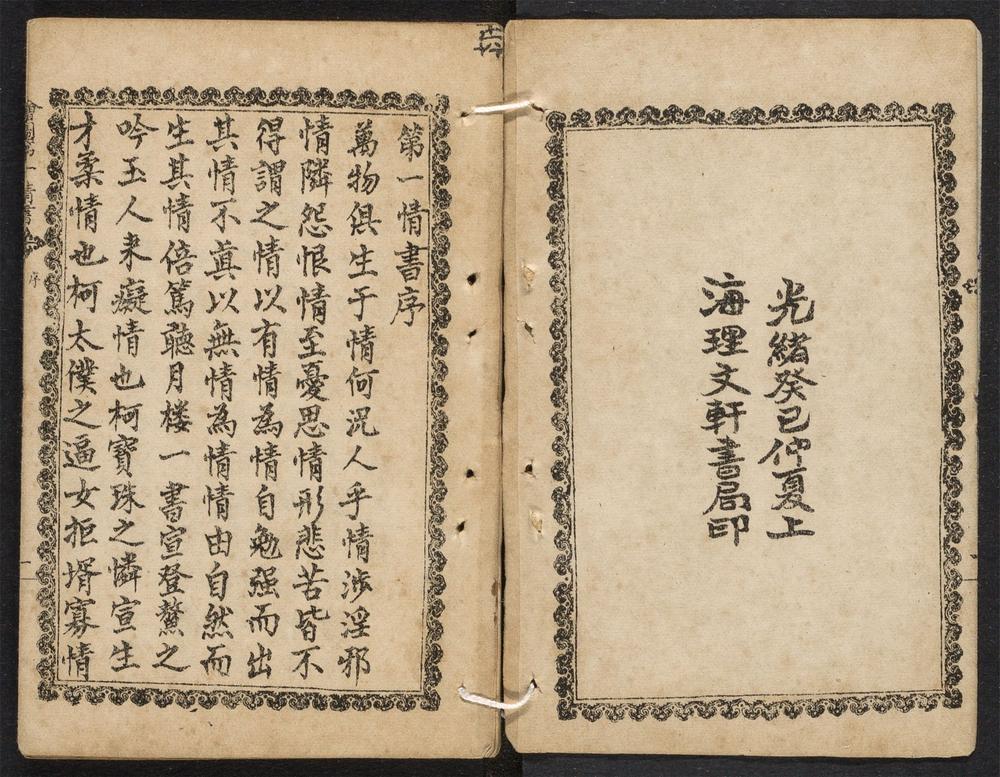 光緒癸巳仲夏上
海理文軒書局印
第一情書序
萬物俱生于情何況人乎情涉淫邪
情隣怨恨情至憂思情形悲苦皆不
得謂之情以有情為情自勉强而出
其情不眞以無情為情情由自然而
生其情倍篤聽月楼一書宣登鰲之
吟玉人来癡情也柯寶珠之憐宣生
才柔情也柯太僕之逼女拒壻寡情
序
一